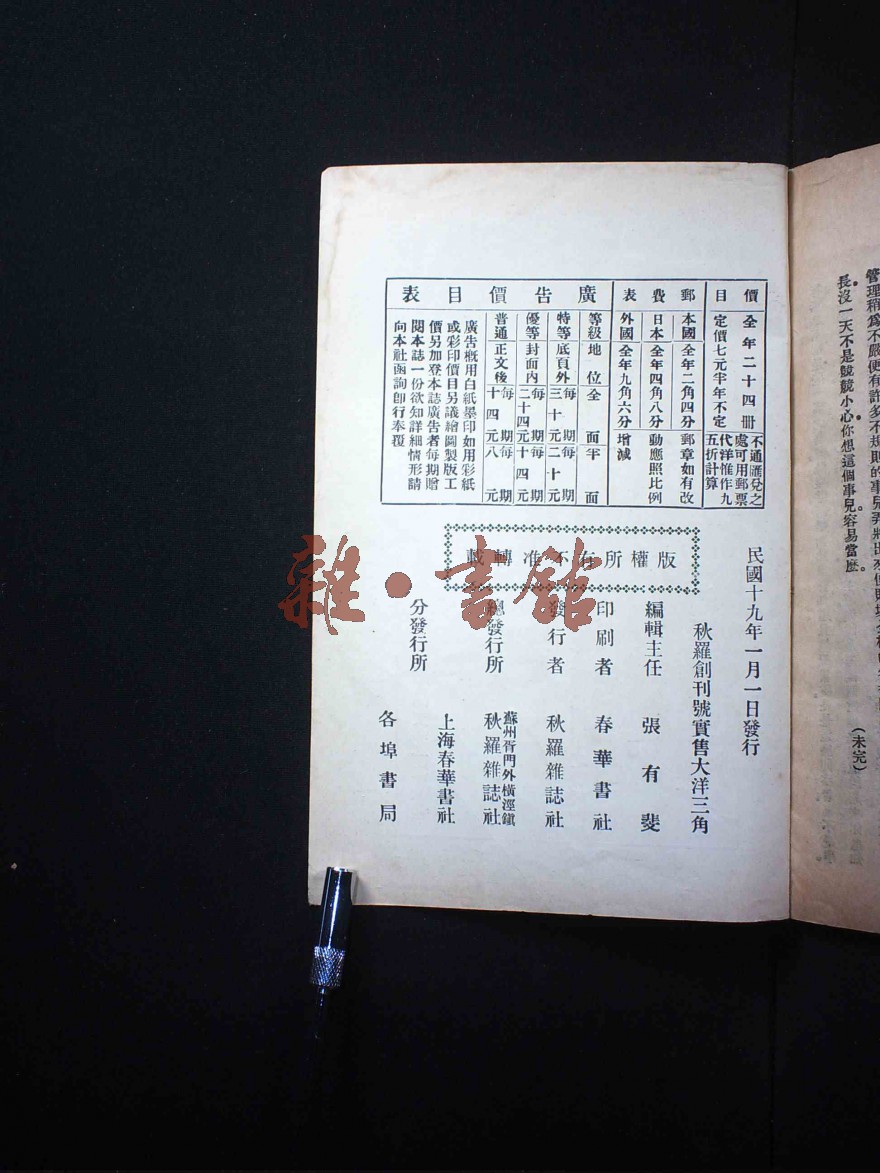 管理稍爲不嚴便有許多不規則的事兒弄將出來
長沒一天不是兢兢小心你想這個事兒容易當麽
（未完）
價目
全年二十四冊
定價七元半年不定
不通匯兌之
處可用郵票
代洋惟作九
五折計算
郵費表
本國 全年二角四分 郵章如有改
日本 全年四角八分 動應照比例
外國 全年九角六分 增減
廣告價目表
等級 地位 全面 半面
特等 底頁外 每期三十元 每期二十元
優等 封面內 每期二十四元 每期十四元
普通 正文後 每期十四元 每期八元
廣告概用白紙墨印如用彩紙
或彩印價目另議繪圖製版工
價另加登本誌廣告者每期贈
閱本誌一份欲知詳細情形請
向本社函詢卽行奉覆
版權所有不准轉載
民國十九年一月一日發行
秋羅創刊號實售大洋三角
編輯主任 張有斐
印刷者 春華書社
發行者 秋羅雜誌社
總發行所 蘇州胥門外橫涇鎭 秋羅雜誌社
分發行所 上海春華書社
各埠書局
雜·書館